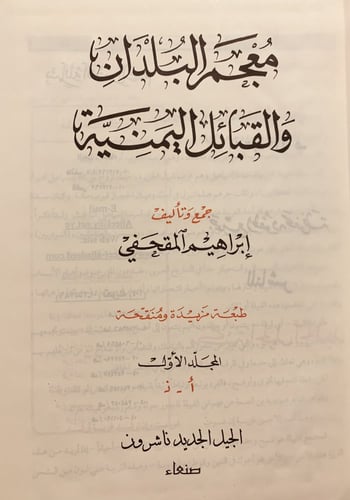 مُعْجَمُ البُلْدَانِ
وَالقَبَائِلِ اليَمَنِيَّةِ
جمع وَتأليف
إبْرَاهِيم المَقْحَفِي
طبعة مَزيدة ومُنقحَة
المجلد الأوّل
أ - ذ
الجيل الجديد ناشرون
صنعاء